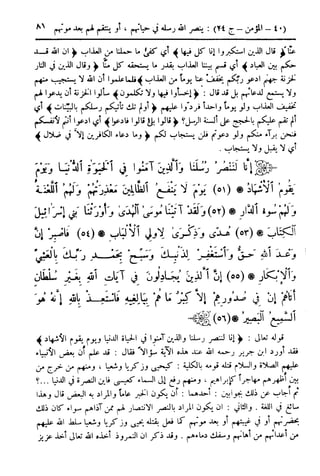 (٤٠ – المؤمن - ج٢٤) : ينصر الله رسله في حياتهم ، أو ينتقم لهم بعد موتهم ٨١
عنا ﴾ قال الذين استكبروا إنا كل فيها ﴾ أي كفى ما حملنا من العذاب ﴿ ان الله قـــد
حكم بين العباد ﴾ أي قسم بيننا العذاب بقدر ما يستحقه كل منّا ﴿ وقال الذين في النار
خزنة جهنم ادعو ربكم يخفف عنا يوماً من العذاب ﴾ فلما علموا أن الله لا يستجيب منهم
ولا يستمع لدعائهم بل قد قال : ﴿ إخسأوا فيها ولا تكلمون ﴾ سألوا الخزنة أن يدعوا لهم
تخفيف العذاب ولو يوماً واحداً فردوا عليهم ﴿ أولم تك تأتيكم رسلكم بالبيّنات ﴾ أي
ألم تقم عليكم بالحجج على ألسنة الرسل ؟ ﴿ قالوا بلى قالوا فادعوا ﴾ أي ادعوا أنتم لأنفسكم
فنحن برآء منكم ولو دعوتم فلن يستجاب لكم ﴿ وما دعاء الكافرين إلا في ضلال ﴾
أي لا يقبل ولا يستجاب .
إِنَّا لَنَنْصُرُ رُسُلَنَا وَالَّذِينَ آمَنُوا فِي الْحَيٰوةِ الدُّنْيَا وَيَوْمَ
يَقُومُ الْأَشْهَادُ * (٥١) يَوْمَ لَا يَنْفَعُ الظَّالِمِينَ مَعْذِرَتُهُمْ وَلَهُمُ اللَّعْنَةُ
وَلَهُمْ سُوءُ الدَّارِ * (٥٢) وَلَقَدْ آتَيْنَا مُوسَى الْهُدَى وَأَوْرَثْنَا بَنِي إِسْرَائِيلَ
الْكِتَابَ * (٥٣) هُدًى وَذِكْرَى لِأُولِي الْأَلْبَابِ * (٥٤) فَاصْبِرْ إِنَّ
وَعْدَ اللهِ حَقٌّ وَاسْتَغْفِرْ لِذَنْبِكَ وَسَبِّحْ بِحَمْدِ رَبِّكَ بِالْعَشِيِّ
وَالْإِبْكَارِ * (٥٥) إِنَّ الَّذِينَ يُجَادِلُونَ فِي آيَاتِ اللهِ بِغَيْرِ سُلْطَانٍ
أَتَاهُمْ إِنْ فِي صُدُورِهِمْ إِلَّا كِبْرٌ مَا هُمْ بِبَالِغِيهِ فَاسْتَعِذْ بِاللهِ إِنَّهُ هُوَ
السَّمِيعُ الْبَصِيرُ * (٥٦)
قوله تعالى : ﴿ إنا لننصر رسلنا والذين آمنوا في الحياة الدنيا ويوم يقوم الأشهاد ﴾
فقد أورد ابن جرير رحمه الله عند هذه الآية سؤالاً فقال : قد علم أن بعض الأنبياء
عليهم الصلاة والسلام قتله قومه بالكلية : كيحيى وزكريا وشعيا ، ومنهم من خرج من
بين أظهرهم مهاجراً كإبراهيم ، ومنهم رفع إلى السماء كعيسى فأين النصرة في الدنيا ...؟
ثم أجاب عن ذلك بجوابين : أحدهما : أن يكون الخبر عاماً والمراد به البعض قال وهذا
سائغ في اللغة . والثاني : ان يكون المراد بالنصر الانتصار لهم ممن آذاهم سواء كان ذلك
بحضرتهم أو في غيبتهم أو بعد موتهم كما فعل بقتلة يحيى وزكريا وشعيا سلط الله عليهم
من أعدائهم من أهانهم وسفك دماءهم . وقد ذكر ان النمروذ أخذه الله تعالى أخذ عزيز